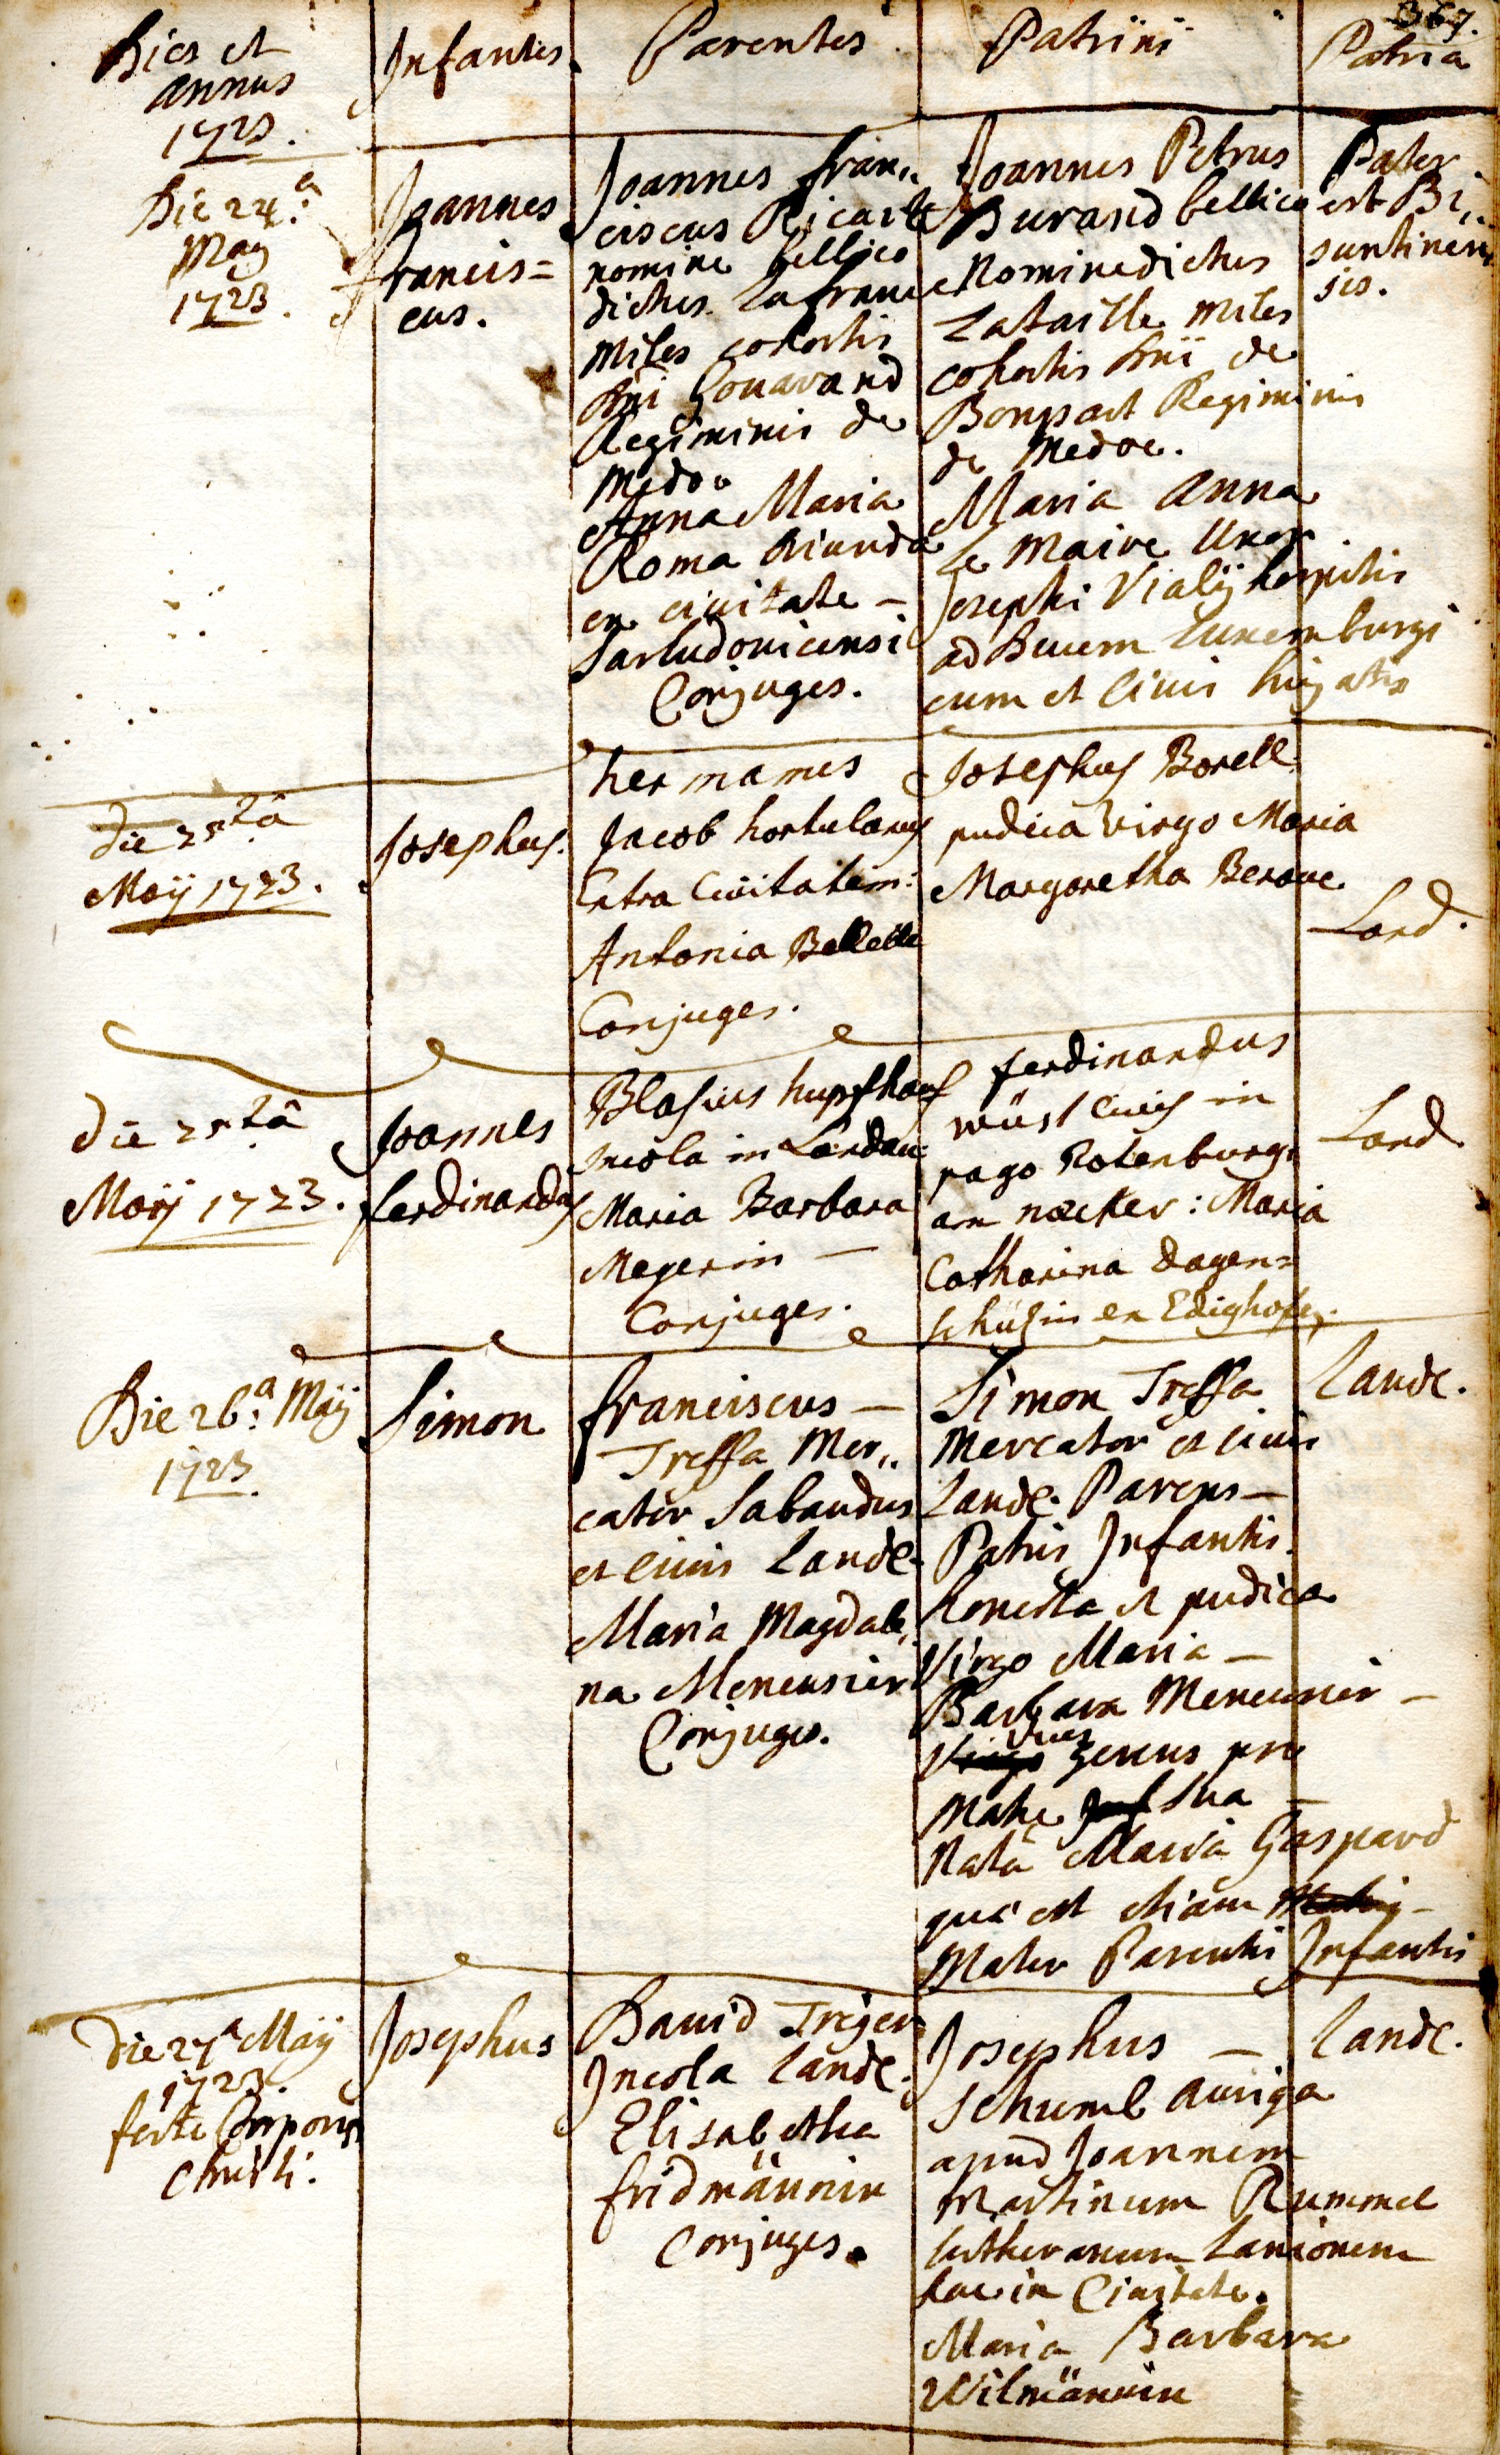 367.
Dies et
annus
1723.
Infantes
Parentes
Patrini
Patria
Die 24.a
May
1723.
Joannes
francis=
cus.
Joannes fran„
ciscus Ricart
nomine bellico
dictus Lafrance
Miles cohortis
Dni Gouarand
Regiminis de
Medoc
Anna Maria
Roma oriunda
ex ciuitate —
Sarludouicensi
Conjuges.
Joannes Petrus
Durand bellico
Nomine dictus
Lataille miles
cohortis Dni de
Bonpart Regiminis
de Medoc.
Maria Anna
le Maire Uxor
Josephi Vialÿ hospitis
ad Bouem Luxemburgi
cum et Ciuis hujatis
Pater
est Bi„
suntinen
sis.
die 25tâ
Maÿ 1723.
Josephus.
hermames
Jacob hortulanus
Extra Civitatem:
Antonia Bellelle
Conjuges.
Josephus Borell
pudica virgo Maria
Margaretha Beraue
Land.
die 25tâ
Maÿ 1723.
Joannes
ferdinandus
Blasius hupfhauf
Incola in Landau:
Maria Barbara
Meyerin —
Conjuges.
ferdinandus
wüst Civis in
pago Rotenburg
am necker: Maria
Catharina dagen=
schüsin ex Edighofen.
Land
Die 26.a Maÿ
1723.
Simon
franciscus —
Treffa Mer„
cator Sabaudus
et Ciuis Landc.
Maria Magdale„
na Meneusier
Conjuges.
Simon Treffa
Mercator et Ciuis
Landc. Parens —
Patris Infantis.
honesta et pudica
Virgo Maria —
Barbara Meneusier —
vices gerens pro
Matre sua —
Nata Maria Gaspard
qua est etiam
Mater Parentis Infantis
Landc.
die 27a Maÿ
1723.
festi Corporis
Christi.
Josephus
Dauid Treger
Incola Landc.
Elisabetha
fridmännin
Conjuges.
Josephus —
Schuml Auriga
apud Joannem
Martinum Rummel
lutheranum Lanionem
hac in Ciuitate.
Maria Barbara
Wilmännin
Landc.